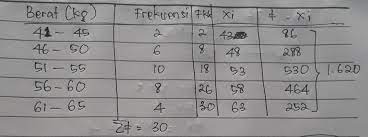 Berat (kg) Frekuensi Fkk xi f . xi
41 - 45 2 2 43 86
46 - 50 6 8 48 288
51 - 55 10 18 53 530 1.620
56 - 60 8 26 58 464
61 - 65 4 30 63 252
Σf = 30